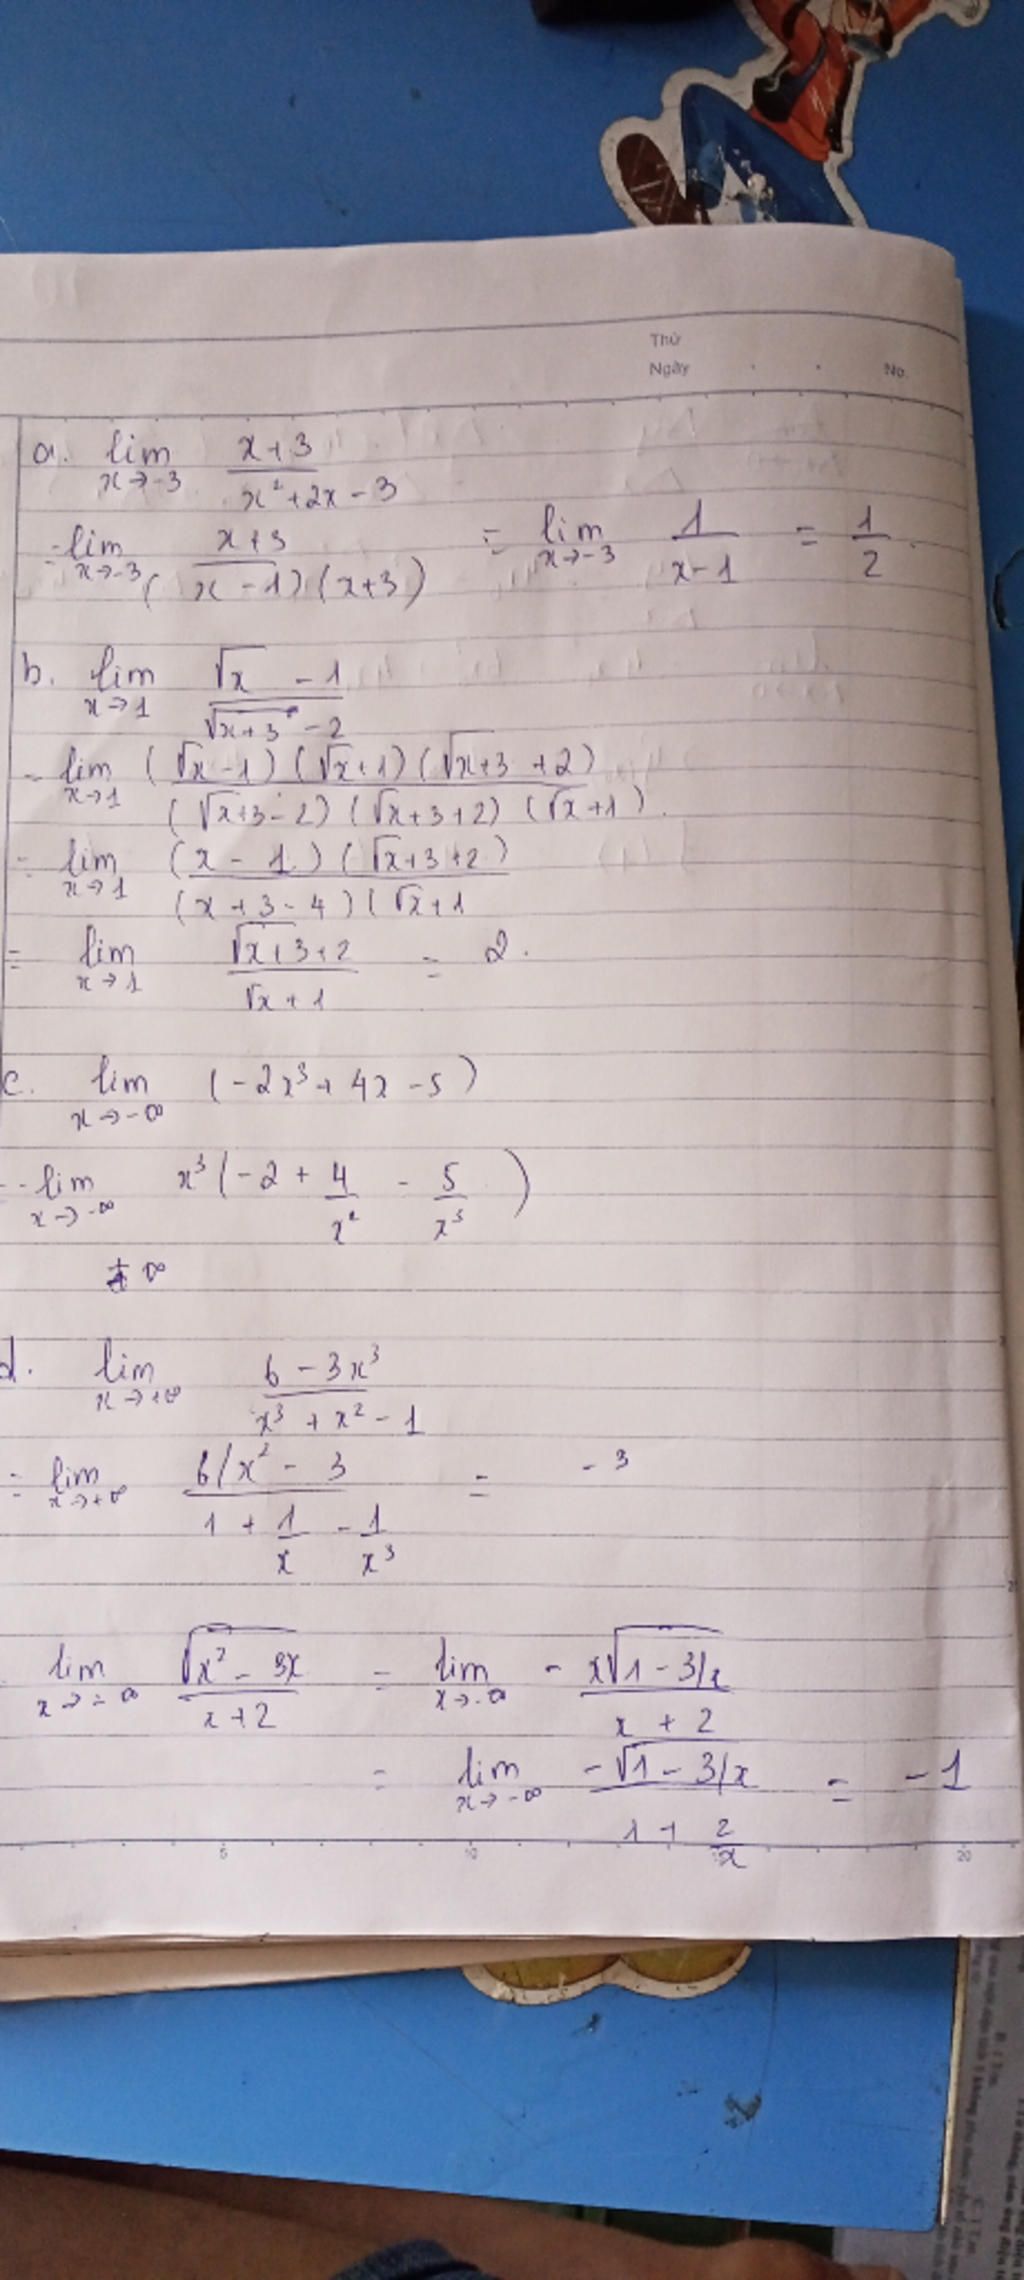 Thứ
Ngày No.
a. lim x→-3 (x+3)/(x²+2x-3)
= lim x→-3 (x+3)/((x-1)(x+3)) = lim x→-3 1/(x-1) = 1/2.
b. lim x→1 (√x - 1)/(√(x+3) - 2)
= lim x→1 ((√x - 1)(√x+1)(√(x+3) + 2))/((√(x+3) - 2)(√(x+3)+2)(√x+1)).
= lim x→1 ((x - 1)(√(x+3)+2))/((x+3-4)(√x+1
= lim x→1 (√(x+3)+2)/(√x+1) = 2.
c. lim x→-∞ (-2x³+4x-5)
= lim x→-∞ x³(-2 + 4/x² - 5/x³)
+∞
d. lim x→+∞ (6-3x³)/(x³+x²-1)
= lim x→+∞ (6/x² - 3)/(1 + 1/x - 1/x³) = -3
lim x→-∞ √(x²-3x)/(x+2) = lim x→-∞ - x√(1-3/x)/(x+2)
= lim x→-∞ -√(1-3/x)/(1+2/x) = -1
5 10 20